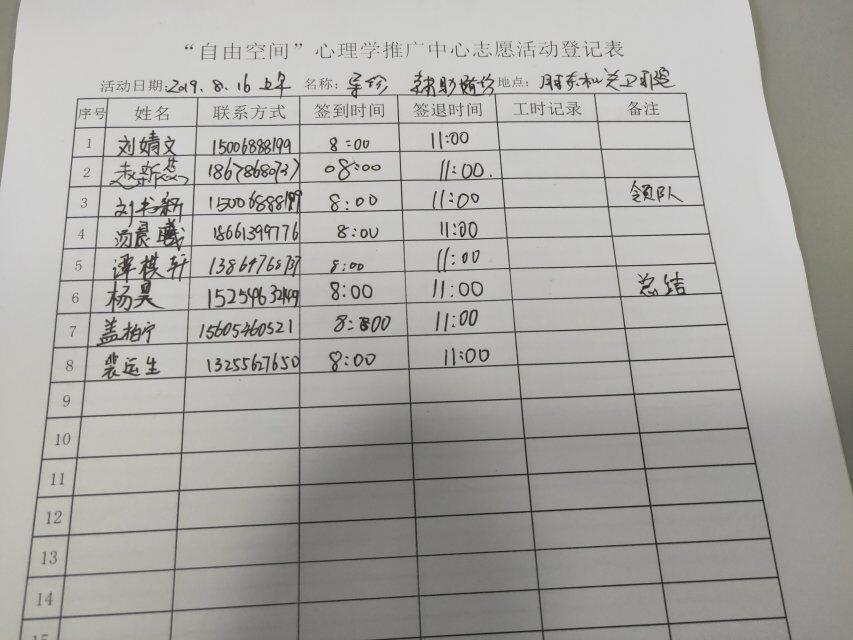 “自由空间”心理学推广中心志愿活动登记表
活动日期:2019.8.16上午 名称:导诊 地点:
序号 姓名 联系方式 签到时间 签退时间 工时记录 备注
1 刘婧文 15006888199 8:00 11:00
2 赵新蕊 08:00 11:00.
3 刘书新 15006888199 8:00 11:00 领队
4 汤晨曦 18661399776 8:00 11:00
5 谭棋轩 8:00 11:00
6 杨昊 8:00 11:00 总结
7 盖柏宁 15605460521 8:00 11:00
8 裴运生 13255627650 8:00 11:00
9
10
11
12
13
14